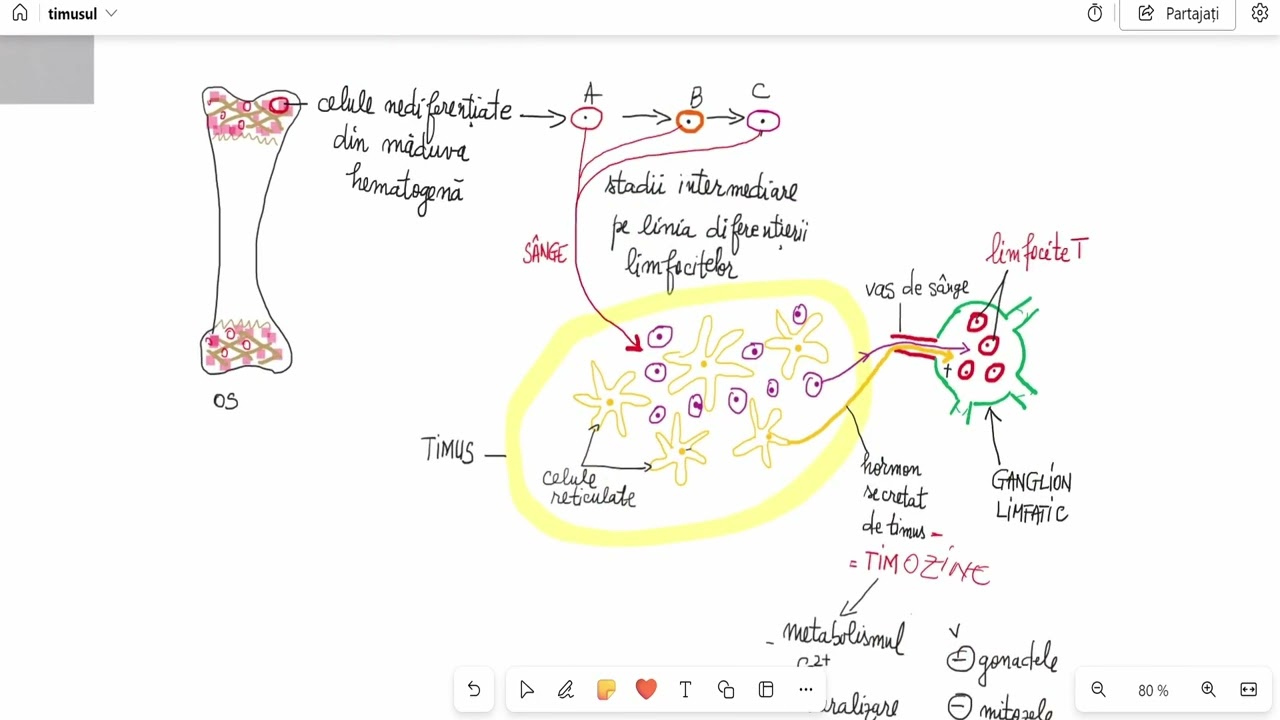 timusul
Partajați
celule nediferențiate
din măduva
hematogenă
A
B
C
stadii intermediare
pe linia diferențierii
limfocitelor
SÂNGE
limfocite T
vas de sânge
+
OS
TIMUS
celule
reticulate
hormon
secretat
de timus -
= TIMOZINE
GANGLION
LIMFATIC
- metabolismul
gonadele
- mitozele
T
80 %